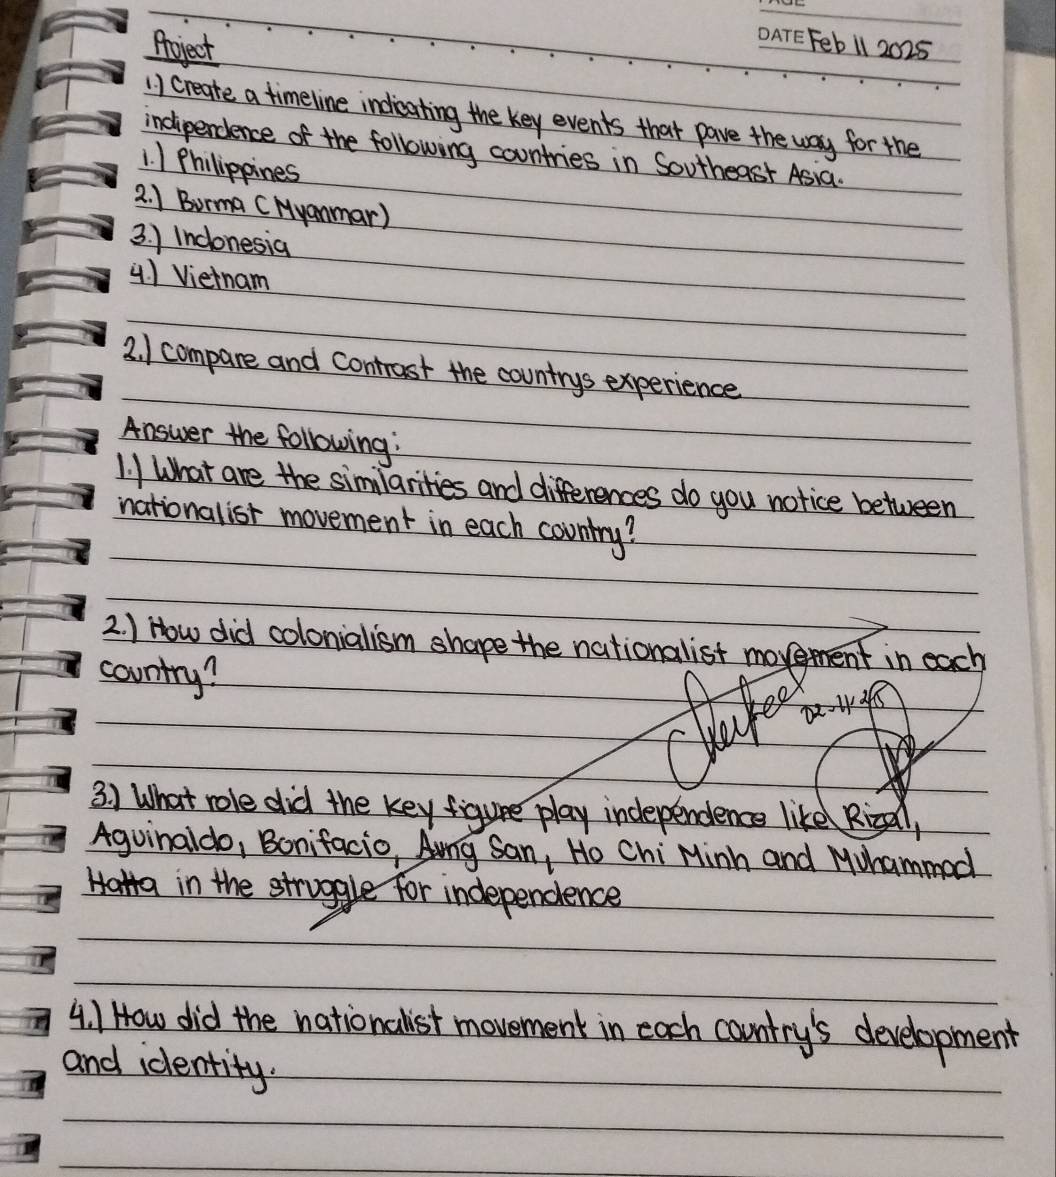 DATE Feb 11 2025
Project
1.) Create a timeline indicating the key events that pave the way for the
indipendence of the following countries in Southeast Asia.
1.) Philippines
2.) Burma (Myanmar)
3.) Indonesia
4.) Vietnam
2.) compare and Contrast the countrys experience
Answer the following:
1.) What are the similarities and differences do you notice between
nationalist movement in each country?
2.) How did colonialism shape the nationalist movement in each
country?
02-11-25
3.) What role did the key figure play independence like Rizal,
Aguinaldo, Bonifacio, Aung San, Ho Chi Minh and Muhammad
Hatta in the struggle for independence
4.) How did the nationalist movement in each country's development
and identity.